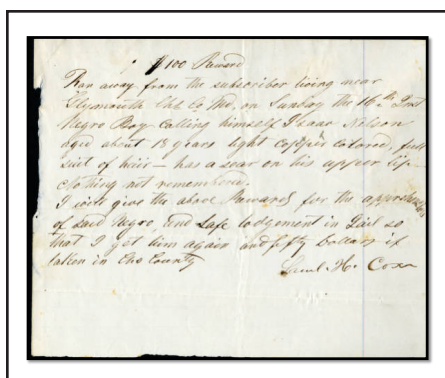 $100 Reward
Ran away from the subscriber living near
Plymouth Chs Co Md, on Sunday the 16th Inst
Negro Boy Calling himself Isaac Nelson
aged about 18 years light copper colored, full
suit of hair — has a scar on his upper lip —
Clothing not remembered.
I will give the above Reward for the
of said Negro, and safe lodgement in Jail so
that I get him again and fifty Dollars if
taken in the County
Saml. H. Cox